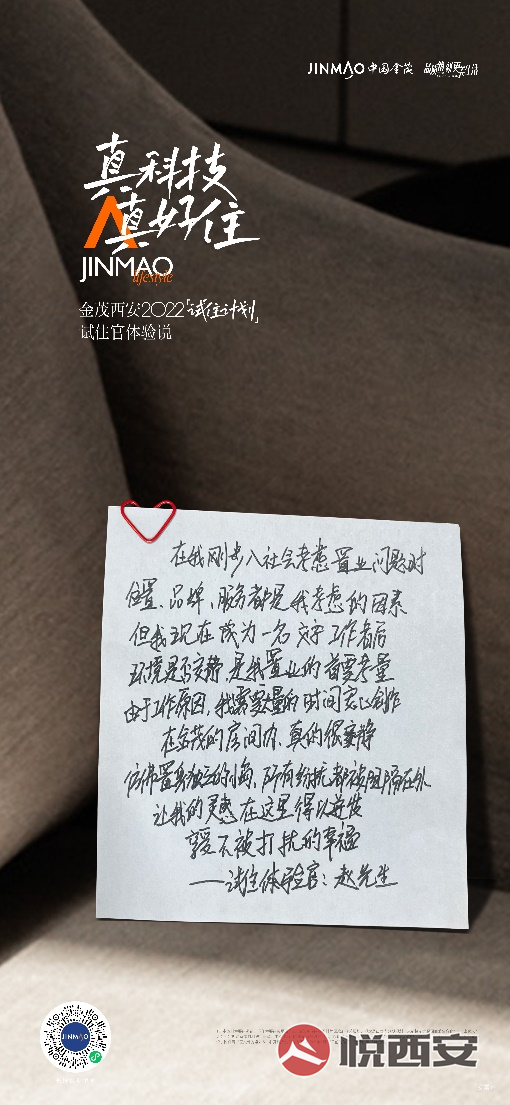 JINMAO 中国金茂
真科技
真好住
JINMAO
lifestyle
金茂西安2022「试住计划」
试住官体验说
在我刚步入社会考虑置业问题时
位置、品牌、服务都是我考虑的因素
但我现在成为一名文字工作者后
环境是否安静，是我置业的首要考量
由于工作原因，我需要大量的时间安心创作
在金茂的房间内，真的很安静
仿佛置身独立的小岛，所有纷扰都被阻隔在外
让我的灵感在这里得以迸发
享受不被打扰的幸福
——试住体验官：赵先生
JINMAO
悦西安